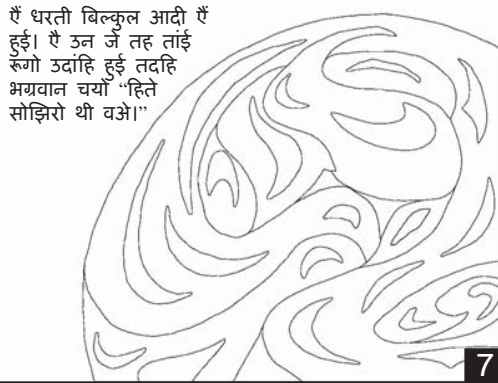 ऐं धरती बिल्कुल आदी ऐं
हुई। ऐ उन जे तह तांई
रूगो उदांहि हुई तदहि
भग्रवान चयों “हिते
सोझिरो थी वञे।”
7